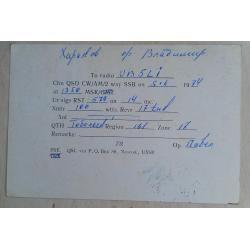 Харьков ор Владимир
To radio UB5LI
Cfm QSO CW/AM/2 way SSB on 1974
at 1350 MSK/GMT
Ur sigs RST: 579 on 14 mc.
Xmtr 100 wtts. Rcvr 17
Ant
QTH Region 161 Zone
Remarks:
73
Op. Павел
PSE. QSL via P.O. Box 88, Moscow, USSR
TNX